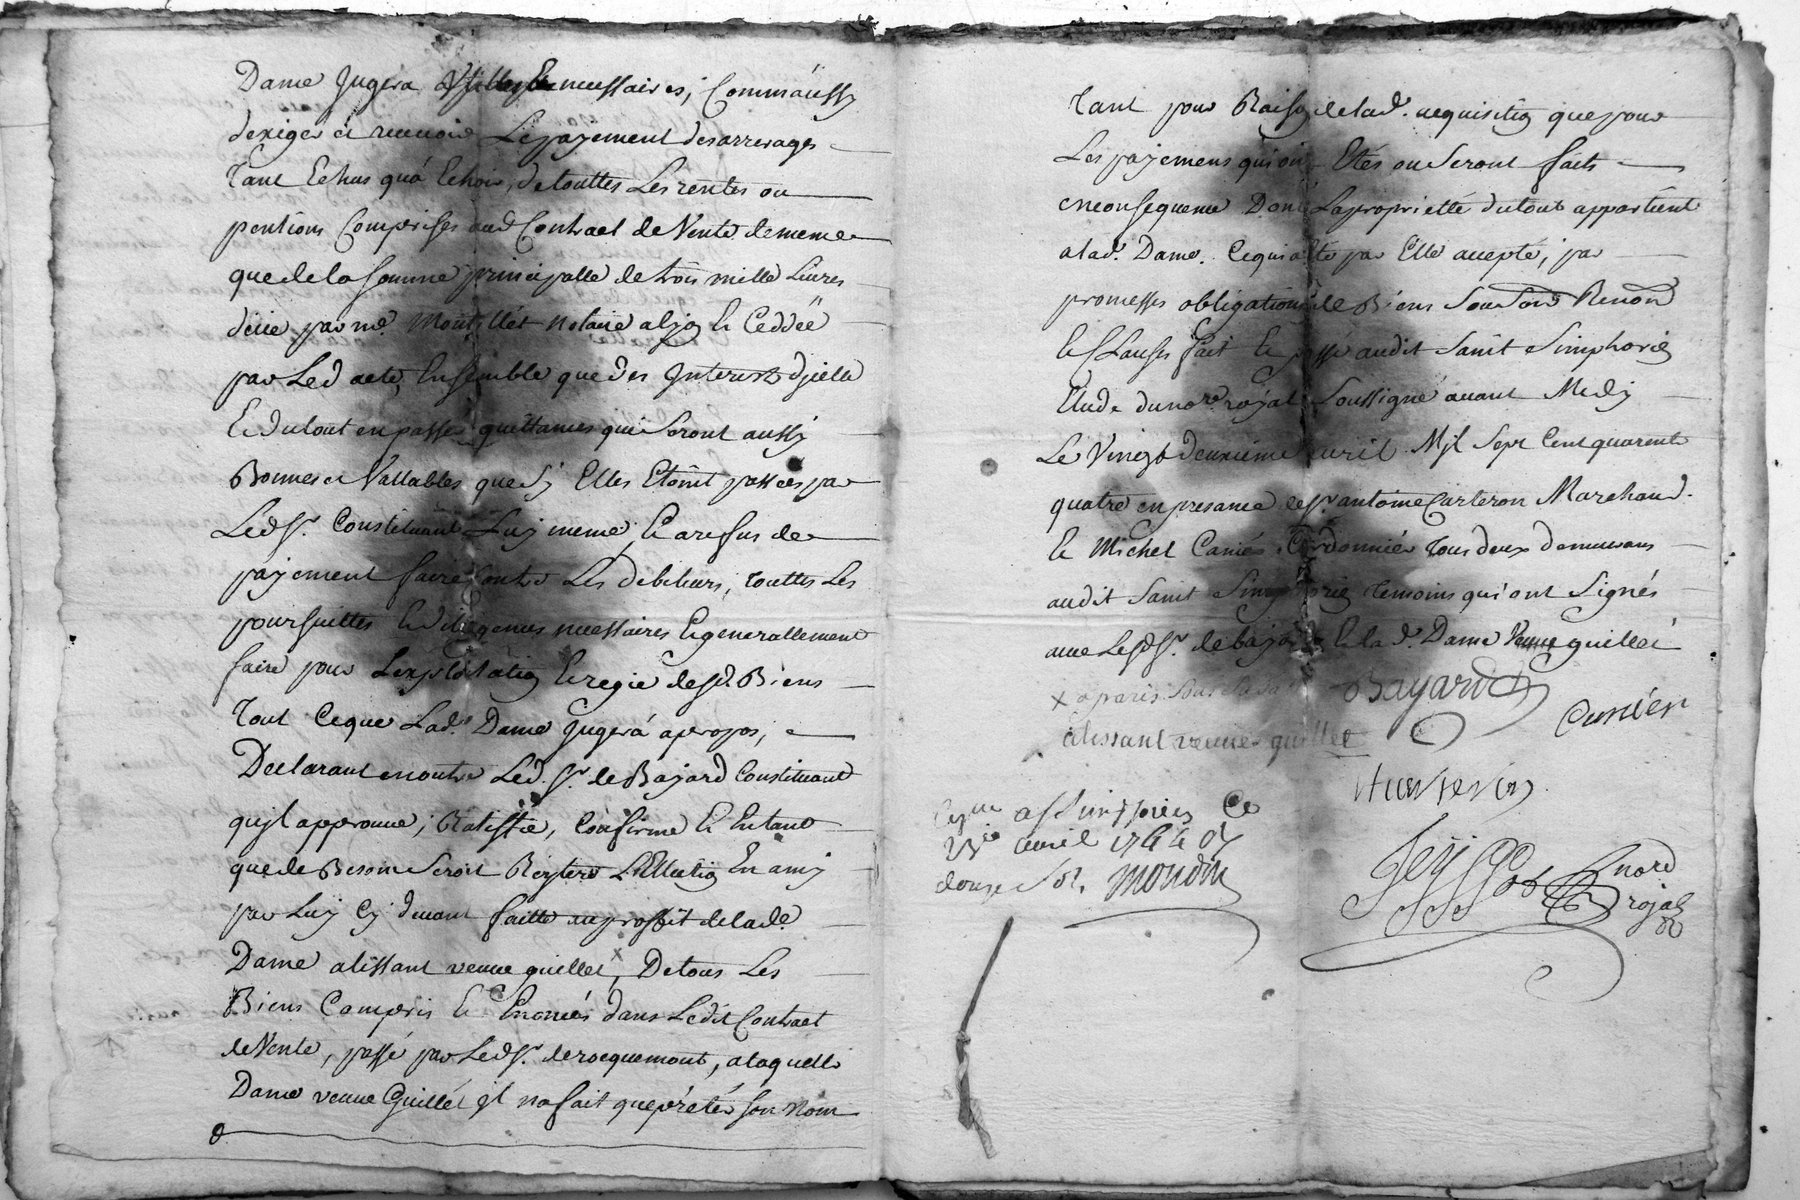 Dame Jugera Utilles Et necessaires, Comm'aussy
dexiger et recevoir Le payement des arrerages
Tant Echus qu'a Echoir, de touttes Les rentes ou
pentions Comprises aud Contract de Vente de meme
que de la somme principalle de trois mille Livres
düe par me. Montellier notaire a Lyon Et Ceddée
par Led acte, Ensemble que des Interest d'jcelle
Et du tout en passer quittances qui Seront aussy
Bonnes et Vallables que Sy Elles Etoint passées par
Led Sr. Constituant Luy meme, Et a refus de
payement faire Contre Les debiteurs, touttes Les
poursuittes Et diligences necessaires Et generallement
faire pour L'exploitation Et regie desd Biens
Tout Ce que Lad. Dame Jugera apropos,
Declarant en outre Led. Sr. de Bayard Constituant
qu'jl approuve, Ratiffie, Confirme Et Entant
que de Besoin Seroit Reytere L'Ellection En amy
par Luy Cy devant faitte au proffit de lade.
Dame alissant veuve guillet, x De tous Les
Biens Compris Et Enoncés dans Ledit Contract
de Vente, passé par Led Sr. de rocquemont, a laquelle
Dame veuve Guillet jl na fait que prêter son nom
Tant pour Raison de lad. acquisition que pour
Les payemens qui ont Etés ou Seront faits
en consequence Dont La propriette du tout appartient
a lad. Dame. Ce qui a Eté par Elle accepté, par
promesses obligations de Biens Sou Son Renon
Et Clauses fait Et passé audit Saint Simphorien
Etude du nore. royal Soussigné avant Midy
Le Vingt deuxieme avril Mil Sept Cent quarente
quatre en presance de Sr. antoine Carteron Marchand.
Et Michel Canier Cordonnier Tous deux demeurans
audit Saint Simphorien temoins qui ont Signés
avec Led Sr. de bayard Et la d. Dame Veuve guillet
x a paris Bayard
alissant veuve guillet Canier
Carteron
avril 1744
douze Sols. Mondin
nore
royal